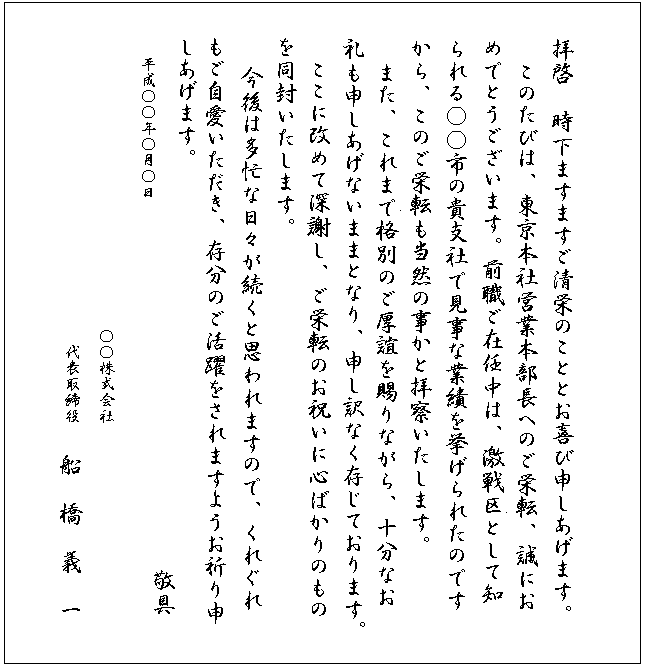 拝啓　時下ますますご清栄のこととお喜び申しあげます。
このたびは、東京本社営業本部長へのご栄転、誠にお
めでとうございます。前職ご在任中は、激戦区として知
られる〇〇市の貴支社で見事な業績を挙げられたのです
から、このご栄転も当然の事かと拝察いたします。
また、これまで格別のご厚誼を賜りながら、十分なお
礼も申しあげないままとなり、申し訳なく存じております。
ここに改めて深謝し、ご栄転のお祝いに心ばかりのもの
を同封いたします。
今後は多忙な日々が続くと思われますので、くれぐれ
もご自愛いただき、存分のご活躍をされますようお祈り申
しあげます。
敬具
平成〇〇年〇月〇日
〇〇株式会社
代表取締役　船橋義一